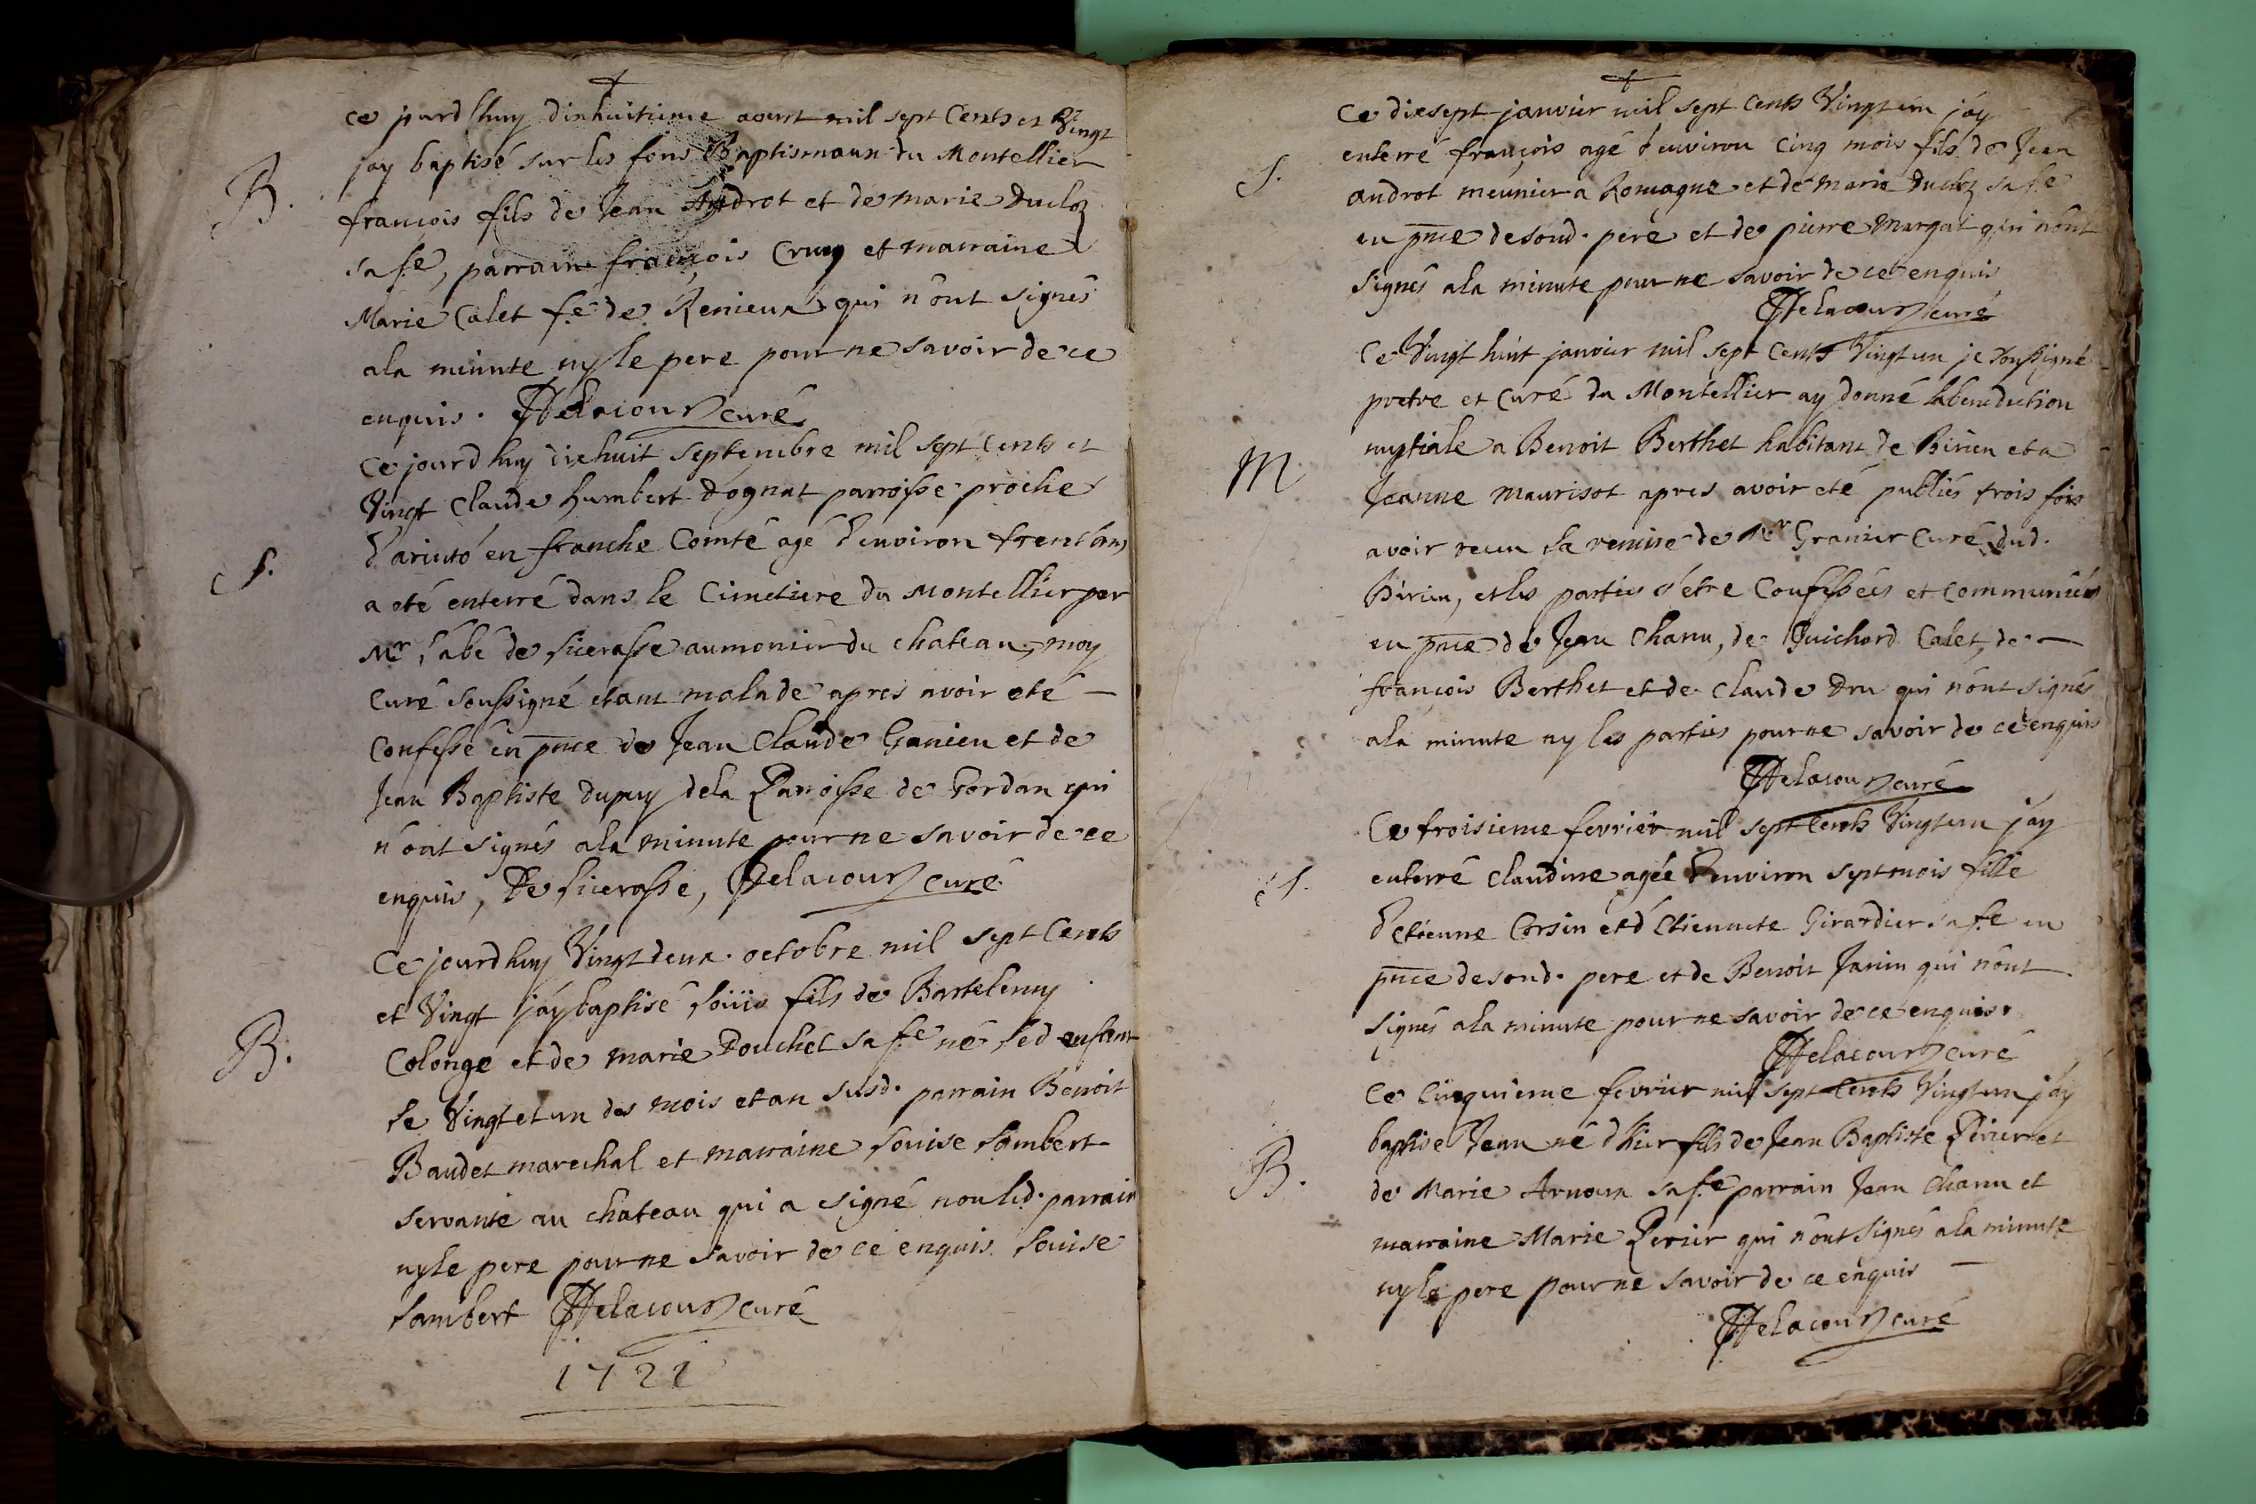 ce jourd'huy dixhuitieme aoust mil sept Cents et Vingt
jay baptisé sur les fons Baptismaux du Montellier
B.
françois fils de Jean Androt et de marie Ducloz
sa fe, parrain françois Cruy et marraine
Marie Calet fe de Renieux qui n'ont signés
ala minute ny le pere pour ne savoir de ce
enquis. Delacour curé
Ce jourdhuy dixhuit Septembre mil sept Cents et
Vingt Claude humbert d'ognat parroisse proche
S.
d'arinto en franche Comté agé d'environ trent'ans
a eté enterré dans le Cimetiere du Montellier par
Mr l'abé de licerasse aumonier du chateau, moy
Curé soussigné etant malade apres avoir eté
Confessé en pnce de Jean Claude Ganieu et de
Jean Baptiste dupuy dela Parroisse de Fordan qui
n'ont signés ala minute pour ne savoir de ce
enquis, De licerasse, Delacour curé
Ce jourdhuy Vingt deux octobre mil sept Cents
et Vingt j'ay baptisé loüis fils de Bartelemy
B.
Colonge et de marie Douchet sa fe né led enfant
le Vingt et un des mois et an susd. parrain Benoit
Baudet marechal et marraine louise lambert
servante au chateau qui a signé non led. parrain
ny le pere pour ne savoir de ce enquis louise
lambert Delacour curé
1721
Ce dixsept janvier mil sept Cents Vingt un j'ay
enterré françois agé d'environ Cinq mois fils de Jean
S.
androt meunier a Romagne et de marie Ducloz sa fe
en pnce desond. pere et de pierre margat qui n'ont
signés ala minute pour ne savoir de ce enquis
Delacour curé
Ce Vingt huit janvier mil sept Cents Vingt un je soussigné
pretre et Curé du Montellier ay donné la benediction
nuptiale a Benoit Berthet habitant de Birieu et a
M
Jeanne maurisot apres avoir eté publiés trois fois
avoir receu la remise de Mr Granier Curé dud.
Birieu, et les parties s'etre Confessées et Communiées
en pnce de Jean Chanu, de Guichard Calet, de
françois Berthet et de Claude Dru qui n'ont signés
ala minute ny les parties pour ne savoir de ce enquis
Delacour curé
Ce troisieme fevrier mil sept Cents Vingt un j'ay
enterré Claudine agée d'environ sept mois fille
S.
d'etienne Corsin et d'etiennete Girardier sa fe en
pnce desond. pere et de Benoit Janin qui n'ont
signés ala minute pour ne savoir de ce enquis.
Delacour curé
Ce Cinquieme fevrier mil sept Cents Vingt un j'ay
baptisé Jean né d'hier fils de Jean Baptiste Perier et
B.
de Marie Arnoux sa fe parrain Jean Chanu et
marraine Marie Perier qui n'ont signés ala minute
ny le pere pour ne savoir de ce enquis
Delacour curé